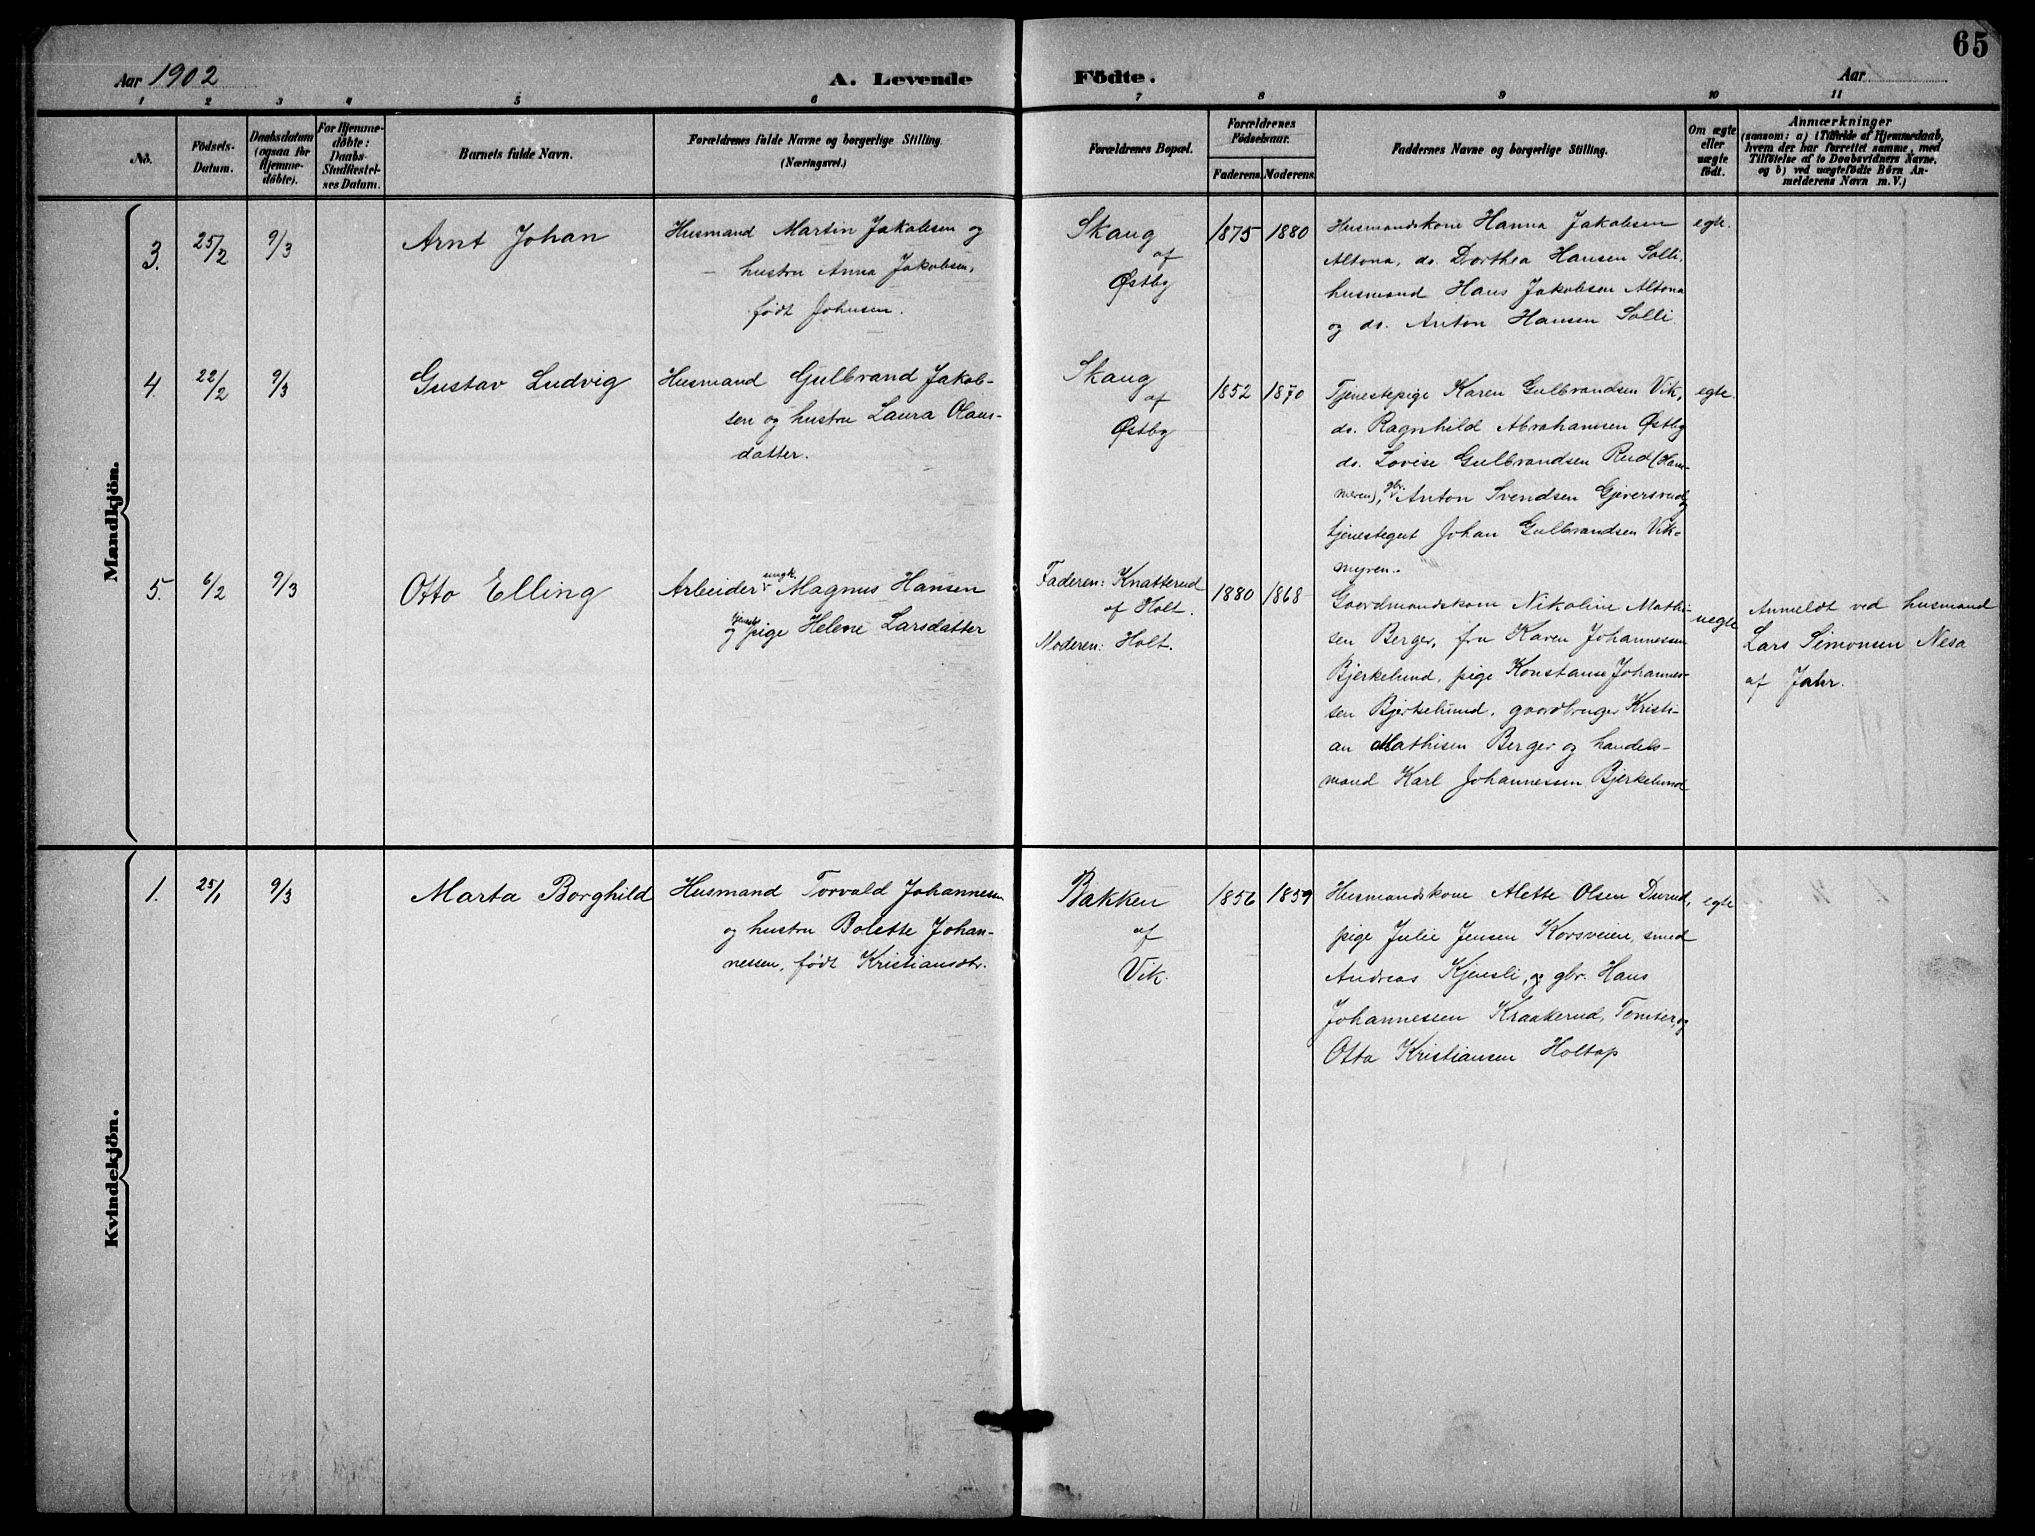 65
Aar 1902
A. Levende
Födte.
Aar
1 2 3 4 5 6 7 8 9 10 11
No.
Födsels-
Datum.
Daabsdatum
(ogsaa for
Hjemme-
döbte).
For Hjemme-
döbte:
Daabs-
Stadfæstel-
ses Datum.
Barnets fulde Navn.
Forældrenes fulde Navne og borgerlige Stilling
(Næringsvei.)
Forældrenes Bopæl.
Forældrenes
Födselsaar.
Faderens. Moderens.
Faddernes Navne og borgerlige Stilling.
Om ægte
eller
uægte
födt.
Anmærkninger
(saasom: a) i Tilfælde af Hjemmedaab,
hvem der har forrettet samme, med
Tilföielse af to Daabsvidners Navne,
og b) ved uægtefödte Börn An-
melderens Navn m. V.)
Mandkjön.
3.
25/2
9/3
Arnt Johan
Husmand Martin Jakobsen og
hustru Anna Jakobsen,
født Johnsen.
Skaug
af
Østby
1875
1880
Husmandskone Hanna Jakobsen
Altona, do. Dorthea Hansen Solli,
husmand Hans Jakobsen Altona
og do. Anton Hansen Solli.
egte.
4.
22/2
9/3
Gustav Ludvig
Husmand Gulbrand Jakob-
sen og hustru Laura Olaus-
datter.
Skaug
af
Østby
1852
1870
Tjenestepige Karen Gulbrandsen Vik,
do. Ragnhild Abrahamsen Østby
do. Lovise Gulbrandsen Rud (Ham-
meren), gbr. Anton Svendsen Gjeversrud og
tjenestegut Johan Gulbrandsen Vik-
myren.
egte.
5.
6/2
9/3
Otto Elling
Arbeider ungk. Magnus Hansen
og pige Helene Larsdatter
Faderen: Knatterud
af Holt.
Moderen: Holt.
1880
1868
Gaardmandskone Nikoline Mathi-
sen Berger, fru Karen Johannessen
Bjerkelund, pige Konstanse Johannes-
sen Bjerkelund, gaardbruger Kristi-
an Mathisen Berger og handels-
mand Karl Johannessen Bjerkelund
uegte
Anmeldt ved husmand
Lars Simonsen Nesa
af Jahr.
Kvindekjön.
1.
25/1
9/3
Marta Borghild
Husmand Torvald Johannessen
og hustru Bolette Johan-
nessen, født Kristiansdtr.
Bakken
af
Vik.
1856
1859
Husmandskone Alette Olsen Durud,
pige Julie Jensen Korsveien, smed
Andreas Kjensli, og gbr. Hans
Johannessen Kraakerud, Tomter, og
Otto Kristiansen Holtop
egte